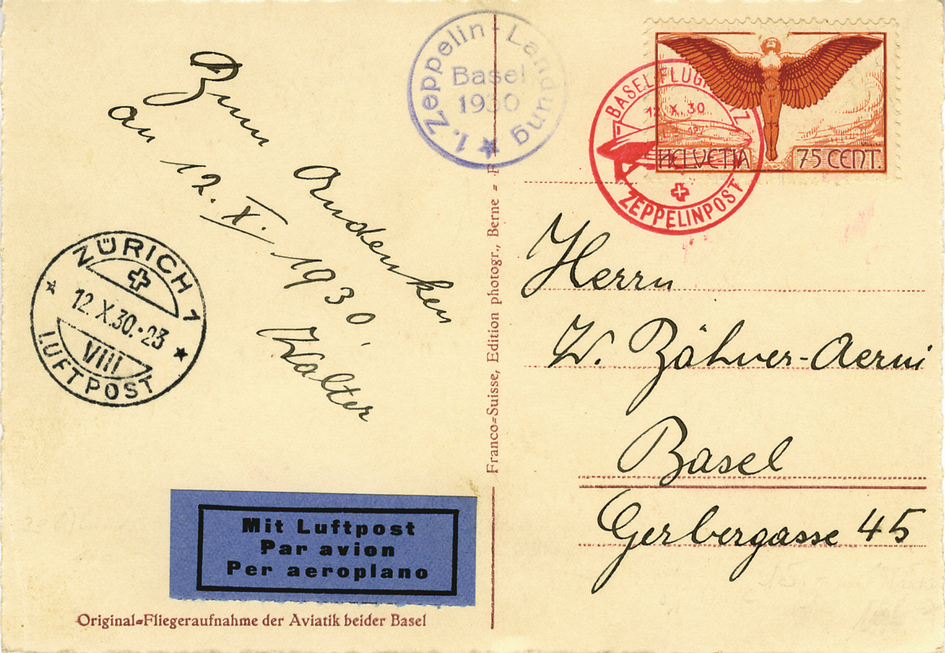 Zum Andenken
an 12. X. 1930,
Walter
1. Zeppelin-Landung
Basel
1930
BASEL FLUGPLATZ
12. X. 30.
ZEPPELINPOST
HELVETIA 75 CENT.
ZÜRICH 1
12.X.30.-23
VIII
LUFTPOST
Franco-Suisse, Edition photogr., Berne
Herrn
W. Zähner-Aerni
Basel
Gerbergasse 45
Mit Luftpost
Par avion
Per aeroplano
Original-Fliegeraufnahme der Aviatik beider Basel